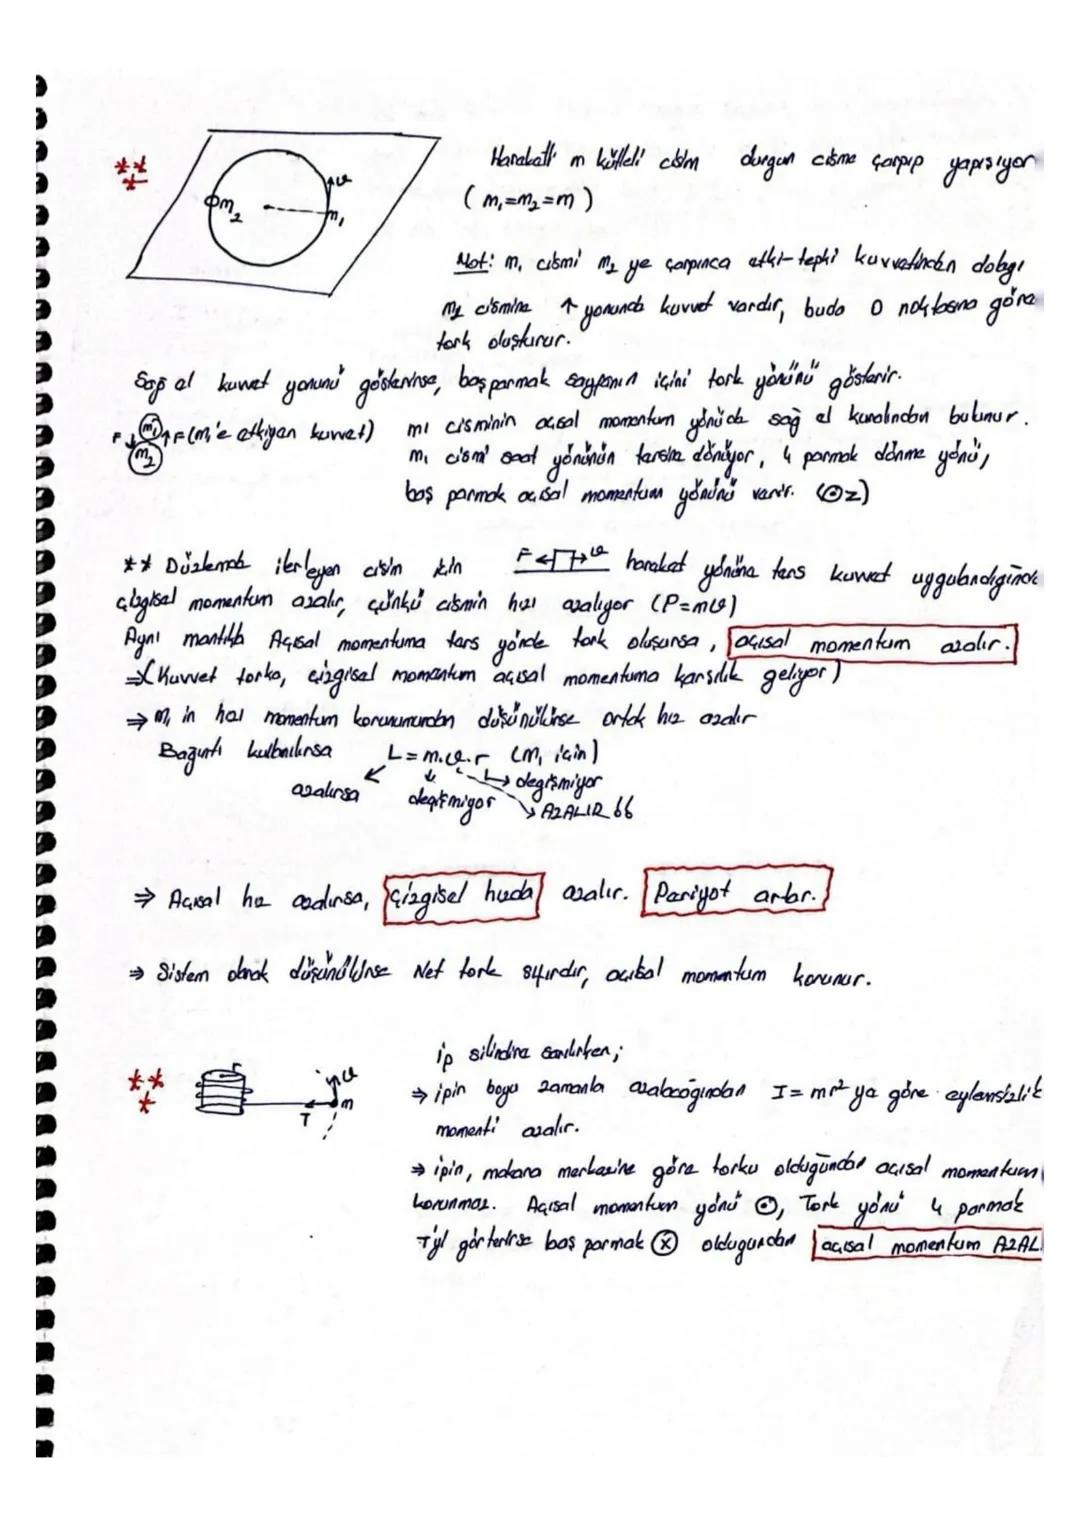 Hareketli m kütleli cisim durgun cisme çarpıp yapışıyor
(m₁=m₂=m)
υ
m₂
m₁
Not: m₁ cismi m₂ ye çarpınca etki-tepki kuvvetinden dolayı
m₂ cismine ↑ yönünde kuvvet vardır, buda O noktasına göre
tork oluşturur.
Sağ el kuvvet yönünü gösterirse, baş parmak sayfanın içini tork yönünü gösterir.
F↓ m₁ ↑F (m₁'e etkiyen kuvvet)
m₂
m₁ cisminin açısal momentum yönüde sağ el kuralından bulunur.
m₁ cismi saat yönünün tersine dönüyor, 4 parmak dönme yönü,
baş parmak açısal momentum yönünü verir. (⊙z)
** Düzlemde ilerleyen cisim için F←□→υ hareket yönüne ters kuvvet uygulandığında
çizgisel momentum azalır, çünkü cismin hızı azalıyor (P=mυ)
Aynı mantıkla Açısal momentuma ters yönde tork oluşursa, açısal momentum azalır.
⇒(Kuvvet torka, çizgisel momentum açısal momentuma karşılık geliyor)
⇒ m₁ in hızı momentum korunumundan düşünülürse ortak hız azalır
Bağıntı kullanılırsa L=m.υ.r (m₁ için)
azalırsa
değişmiyor
değişmiyor
AZALIR
⇒ Açısal hız azalırsa, Çizgisel hızda azalır. Periyot artar.
⇒ Sistem olarak düşünülürse Net tork sıfırdır, açısal momentum korunur.
ip silindire sarılırken;
υ
m
T
⇒ ipin boyu zamanla azalacağından I=mr² ye göre eylemsizlik
momenti azalır.
⇒ ipin, makara merkezine göre torku olduğundan açısal momentum
korunmaz. Açısal momentum yönü ⊙, Tork yönü 4 parmak
T'yi gösterirse baş parmak ⊗ olduğundan açısal momentum AZAL